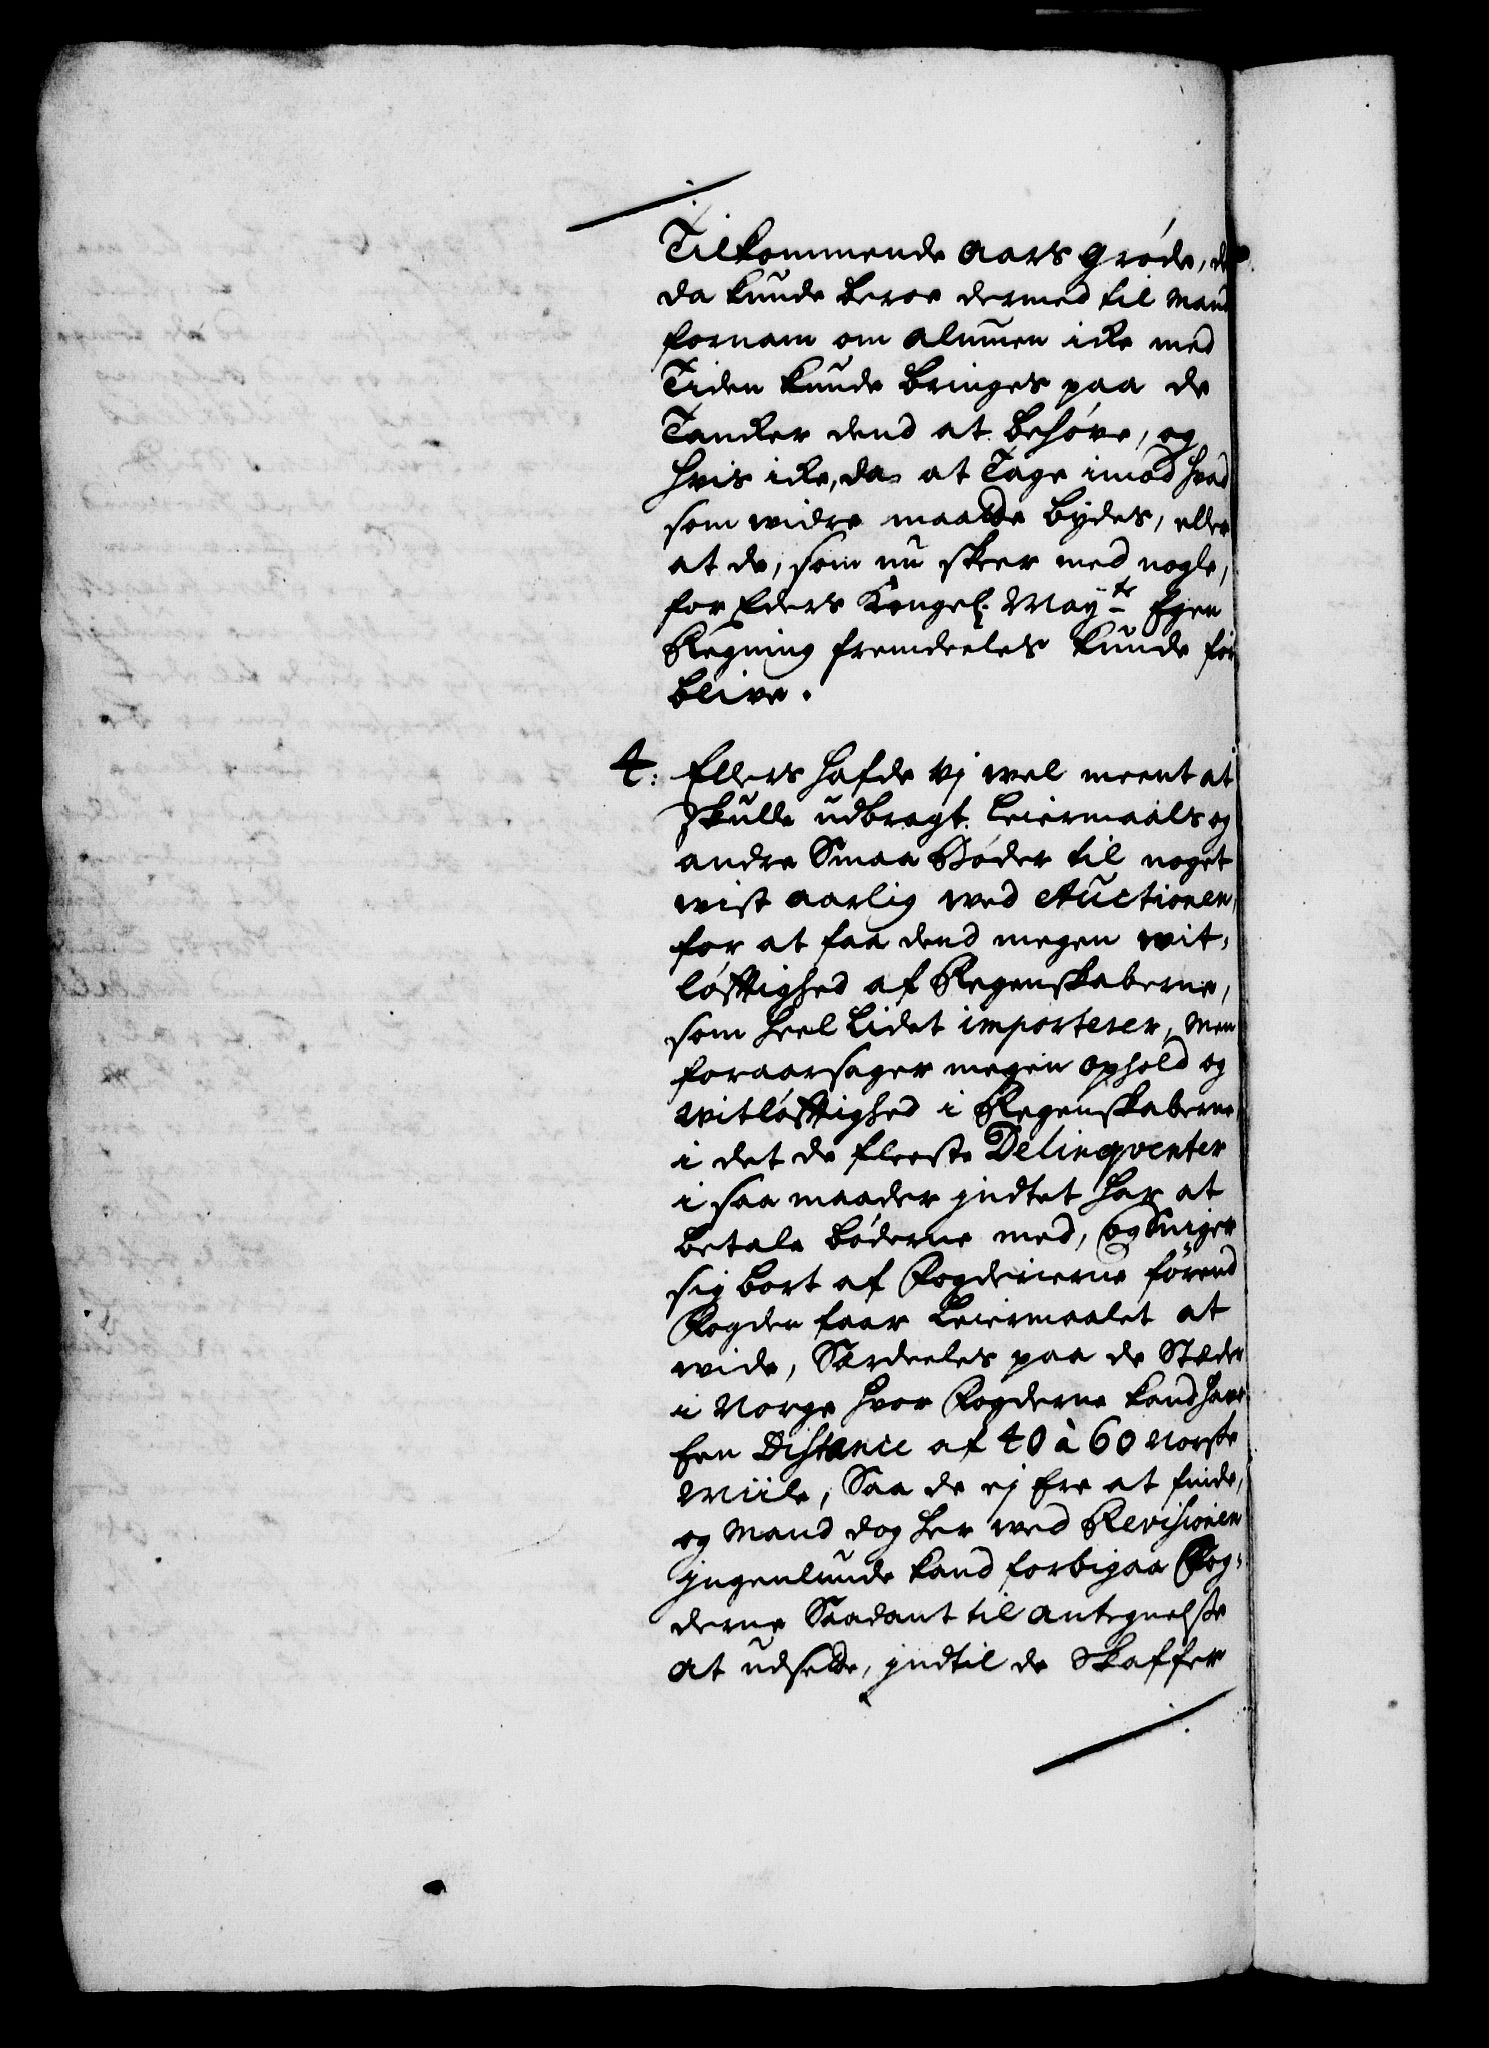 Tilkommende Aars grøde, de
da kunde beroe dermed til Mand
fornam om Almuen icke med
Tiden kunde bringes paa de
Tancker dend at behøve, og
hvis icke, da at Tage imod hvad
som widre maatte bydes, eller
at de, som nu skeer med nogle,
for Eders Kongel: Mayts Egen
Regning fremdeeles kunde for
blive.
4: Ellers hafde vj wel meent at
skulle udbragt Leiermaals og
andre Smaa Bøder til noget
wist aarlig wed Auctionen,
for at faa dend megen wit-
løfftighed af Regenskaberne,
som heel Lidet importerer, Men
foraarsager megen ophold og
witløfftighed i Regenskaberne
i det de fleeste Delinqventer
i saa maader jndtet har at
betale bøderne med, og Sniger
sig bort af Fogderierne førend
Fogden faar Leiermaalet at
wide, Særdeeles paa de Stæder
i Norge hvor Fogderne kand have
Een Distance af 40 à 60 Norske
Miile, Saa de ej Ere at finde,
og Mand dog her wed Revisionen
jngenlunde kand forbigaa Fog-
derne Saadant til Antegnelse
at udsette, jndtil de Skaffer